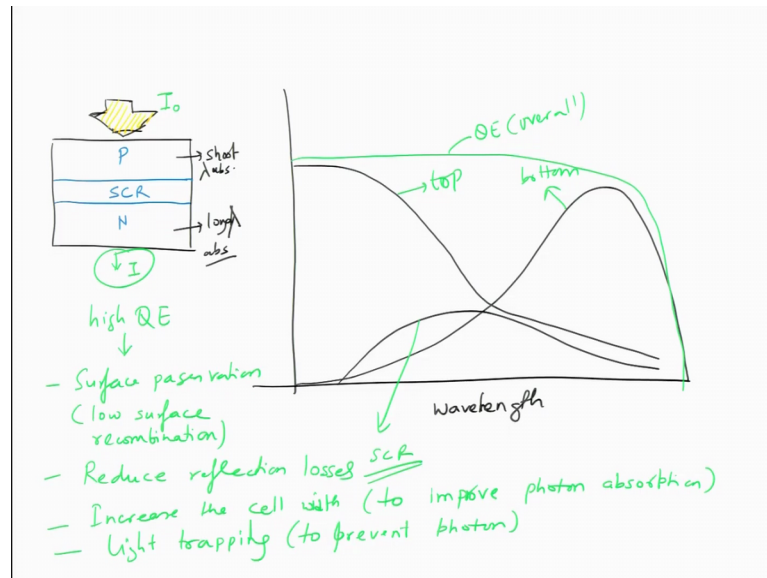 I₀
P
→ short
λ abs.
SCR
N
→ long λ
abs
↓ I
QE (overall)
top
bottom
wavelength
high QE
- Surface passivation
(low surface
recombination)
- Reduce reflection losses
SCR
- Increase the cell width (to improve photon absorption)
- light trapping (to prevent photon)